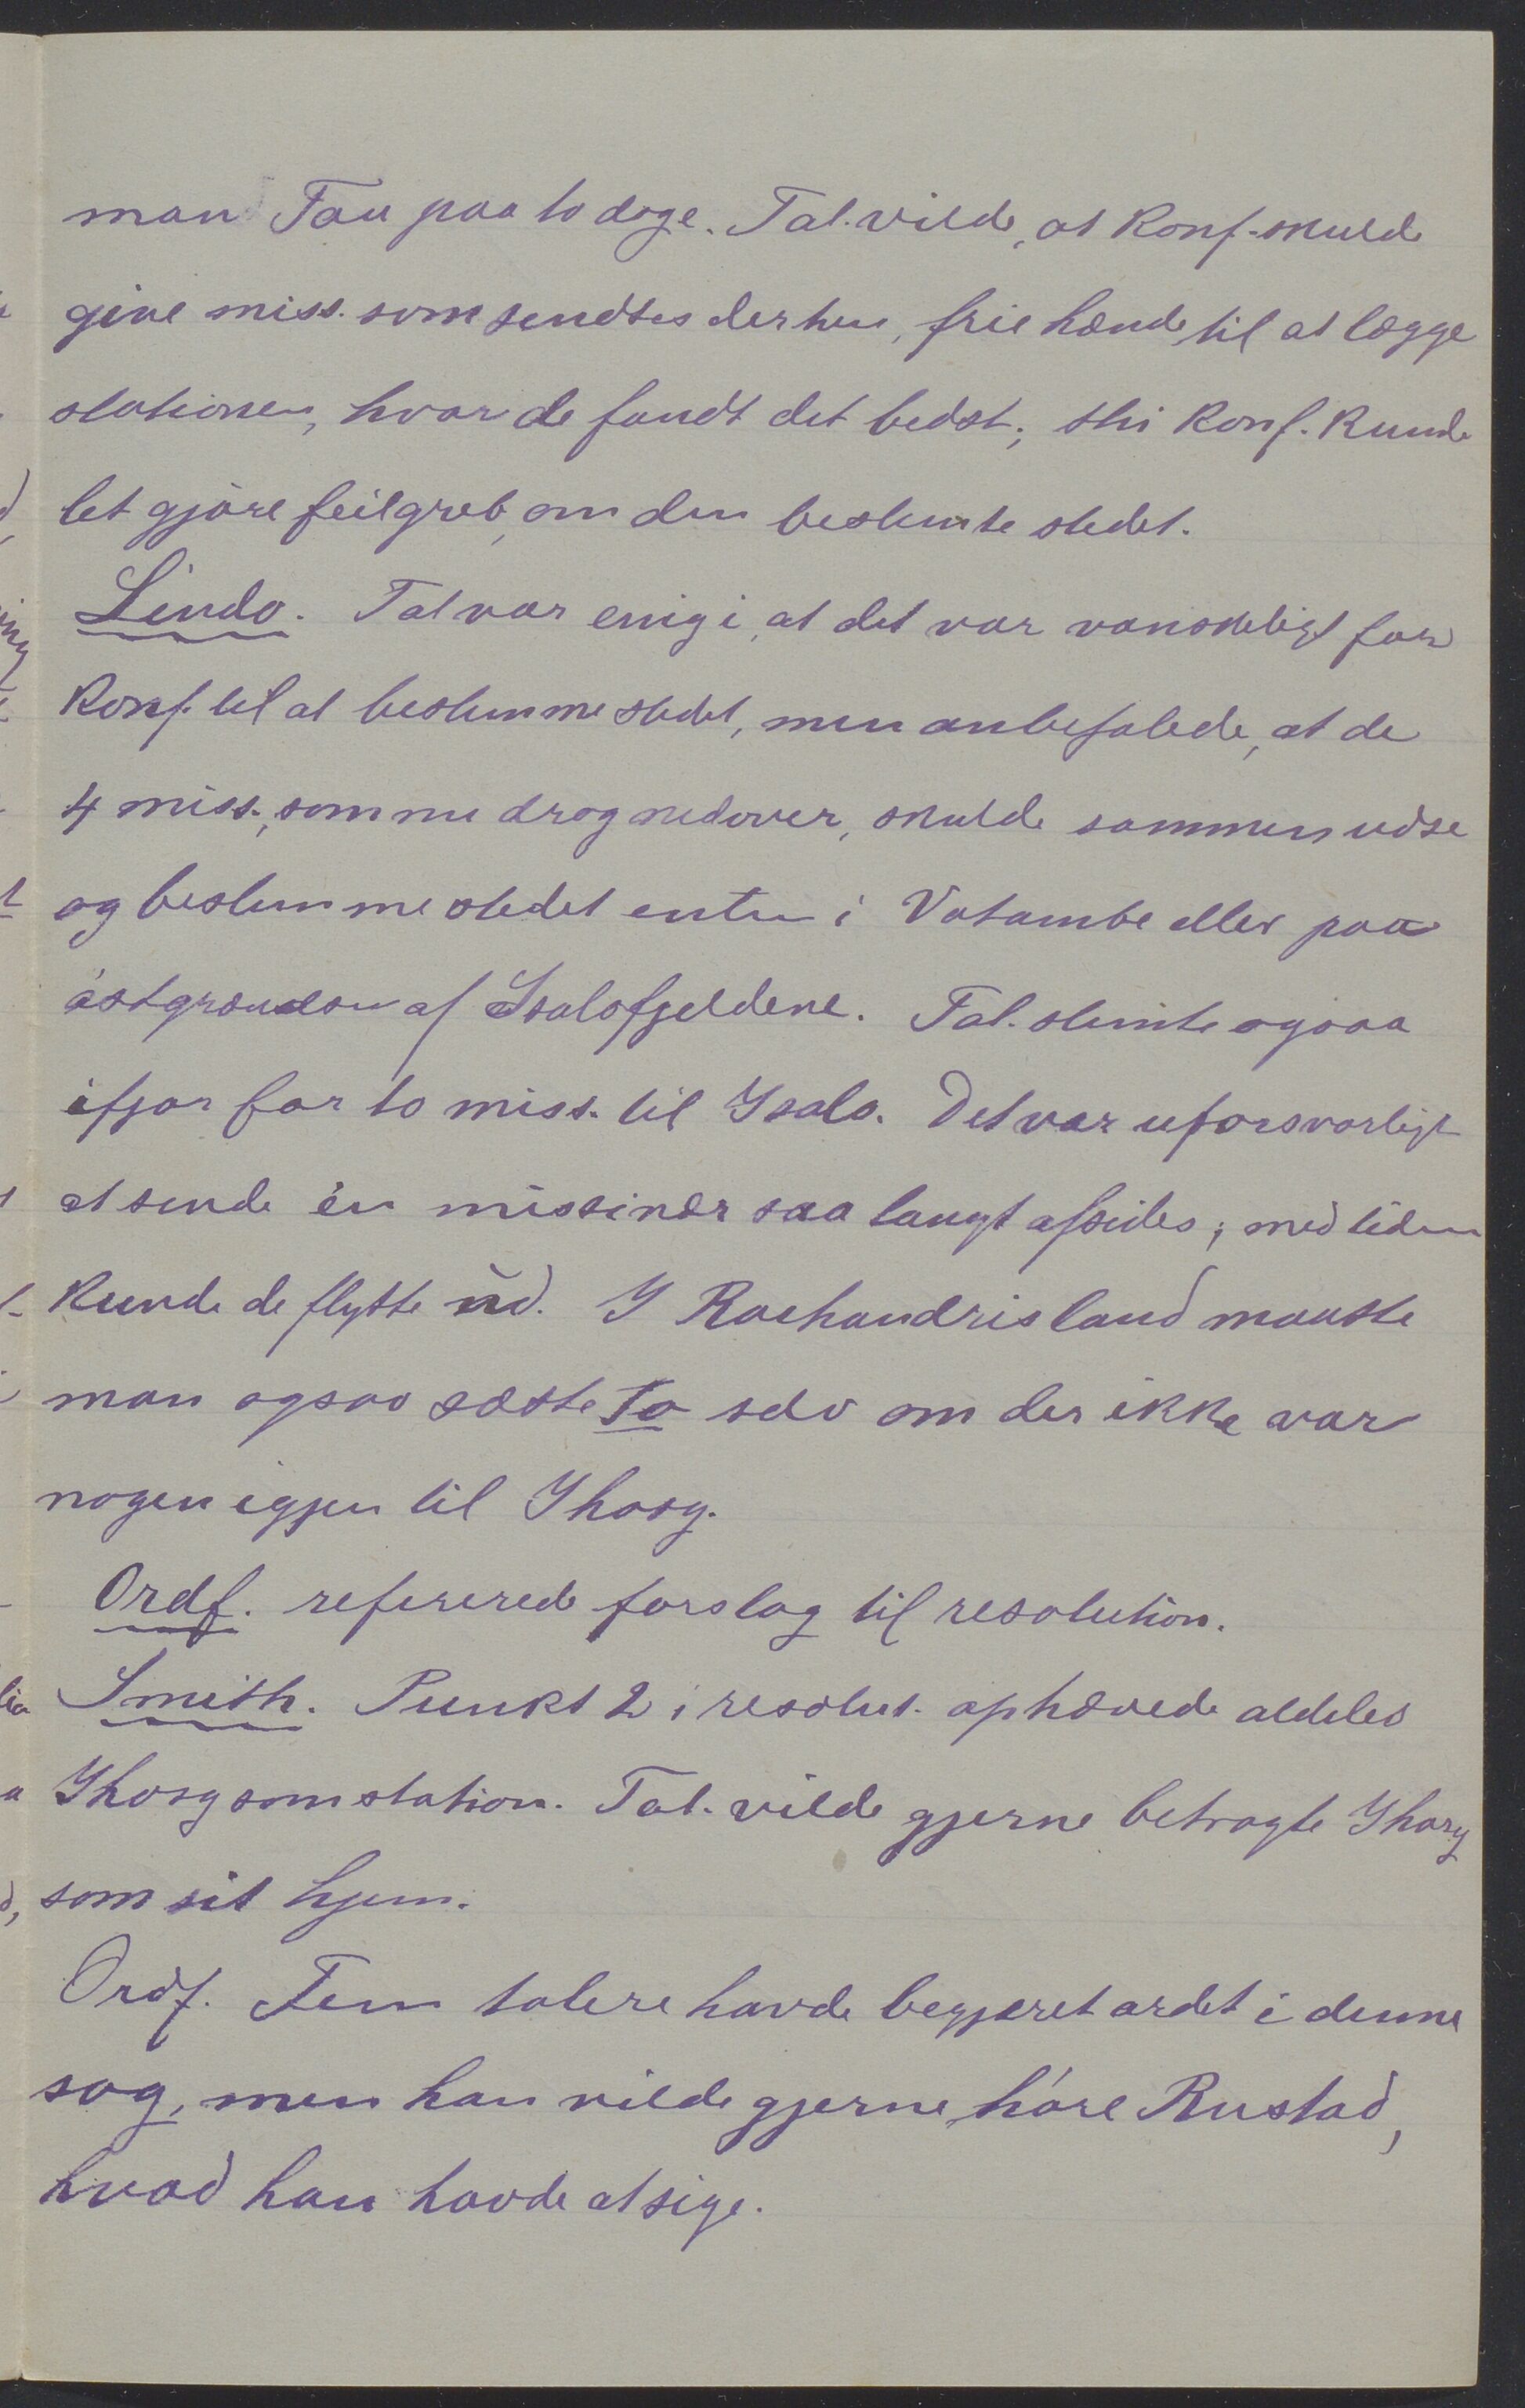 man Tau paa to dage. Tal. vilde, at Konf. skulde
give miss. som sendtes derhen, frie hænder til at lægge
stationen, hvor de fandt det bedst; thi Konf. kunde
let gjøre feilgreb, om den bestemte stedet.
Lindo. Tal var enig i, at det var vanskeligt for
Konf. til at bestemme stedet, men anbefalede, at de
4 miss., som nu drog nedover, skulde sammen udse
og bestemme stedet enten i Vatambe eller paa
østgrændsen af Isalofjeldene. Tal. stemte ogsaa
ifjor for to miss. til Isalo. Det var uforsvarligt
at sende én missinær saa langt afsides; med tiden
kunde de flytte ud. I Raehandrisland maatte
man ogsaa sætte to selv om der ikke var
nogen igjen til Ihosy.
Ordf. refererede forslag til resolution.
Smith. Punkt 2 i resolut. ophævede aldeles
Ihosy som station. Tal. vilde gjerne betragte Ihosy
som sit hjem.
Ordf. Fem talere havde begjæret ordet i denne
sag, men han vilde gjerne høre Rustad,
hvad han havde at sige.